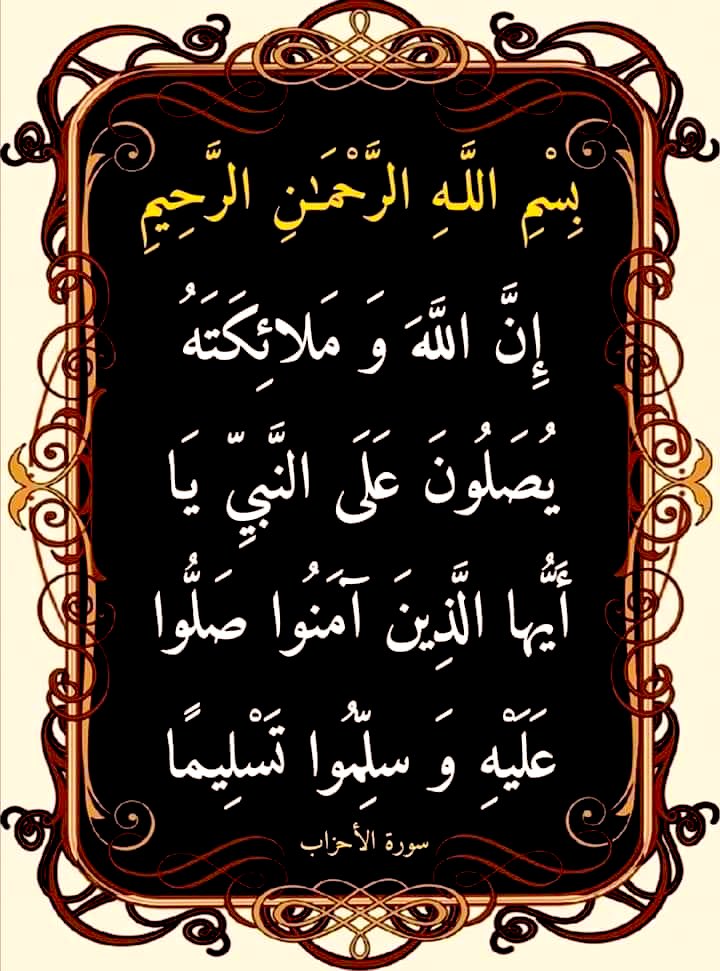 بِسْمِ اللَّـهِ الرَّحْمَـٰنِ الرَّحِيمِ
إِنَّ اللَّهَ وَ مَلائِكَتَهُ
يُصَلُونَ عَلَى النَّبِيِّ يَا
أَيُّها الَّذِينَ آمَنُوا صَلُّوا
عَلَيْهِ وَ سلِّمُوا تَسْلِيمًا
سورة الأحزاب